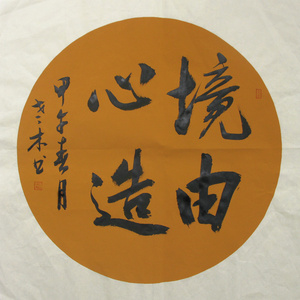 境由
心造
甲午春月